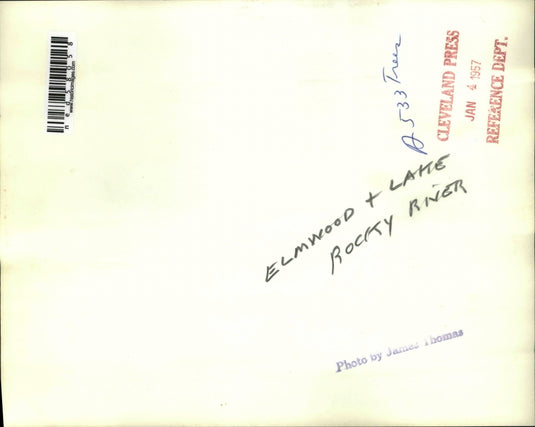 A 533 Trees
CLEVELAND PRESS
JAN 4 1957
REFERENCE DEPT.
ELMWOOD + LAKE
ROCKY RIVER
Photo by James Thomas